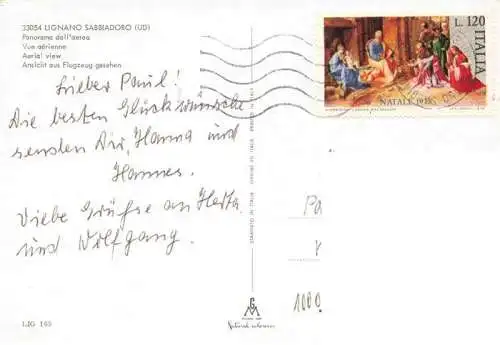 33054 LIGNANO SABBIADORO (UD)
Panorama dall'aereo
Vue aérienne
Aerial view
Ansicht aus Flugzeug gesehen
Lieber Paul!
Die besten Glückwünsche
senden Dir, Hanna und
Hannes.
Viele Grüße an Herta
und Wolfgang.
LIG 165
STAMPATO IN ITALIA
L. 120
ITALIA
NATALE 1975
Pa
1000